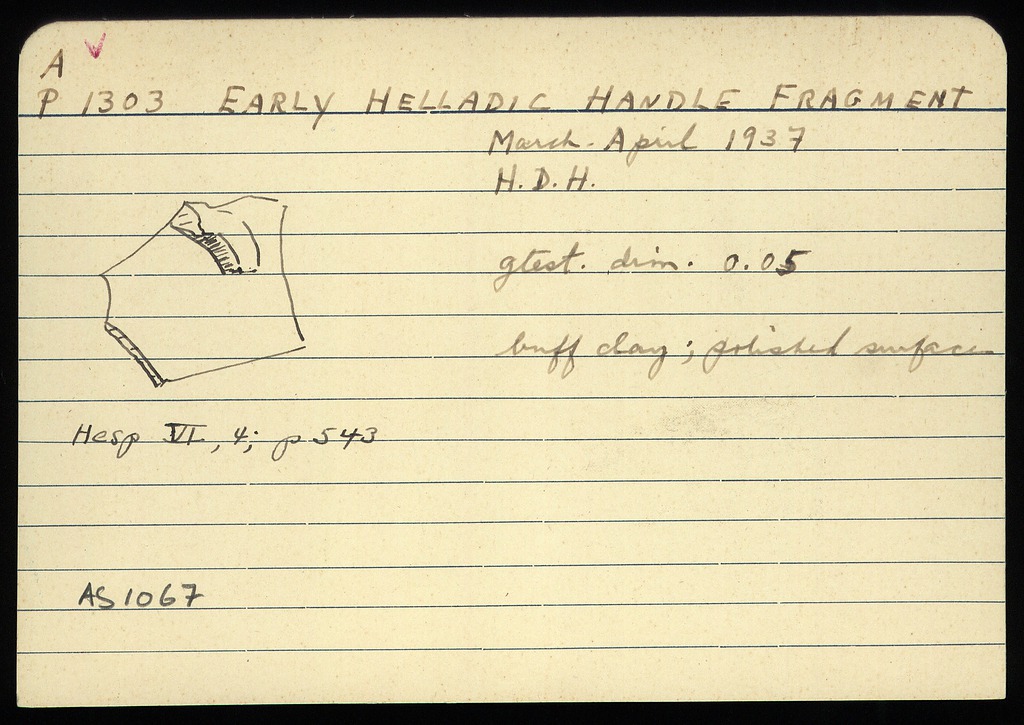 A
P 1303 EARLY HELLADIC HANDLE FRAGMENT
March-April 1937
H.D.H.
gtest. dim. 0.05
buff clay; polished surface
Hesp VI, 4; p 543
AS 1067